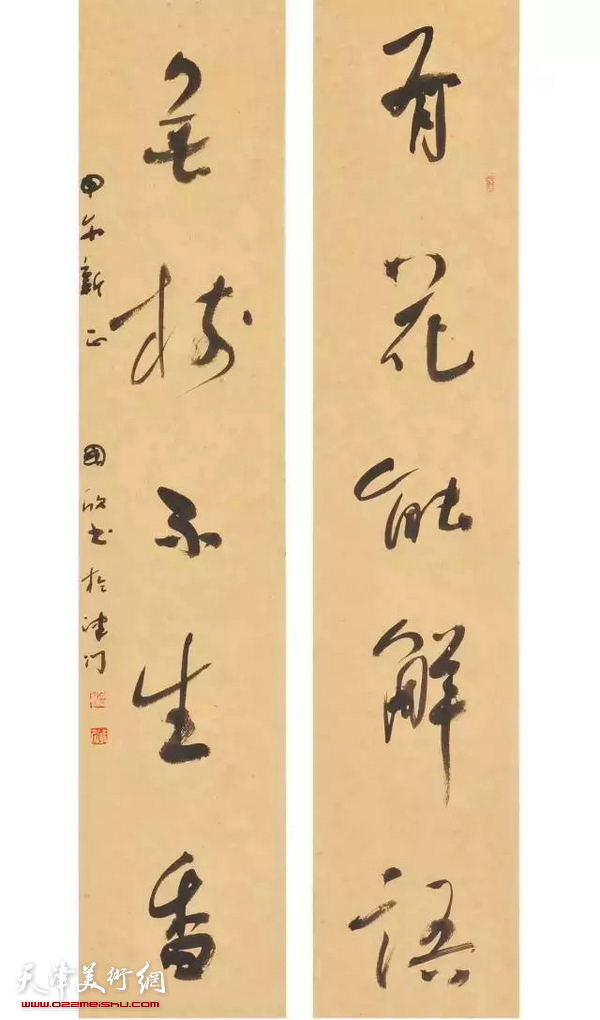 有花能解語
無樹不生香
甲午新正
國欣書於津門
天津美術網
www.022meishu.com